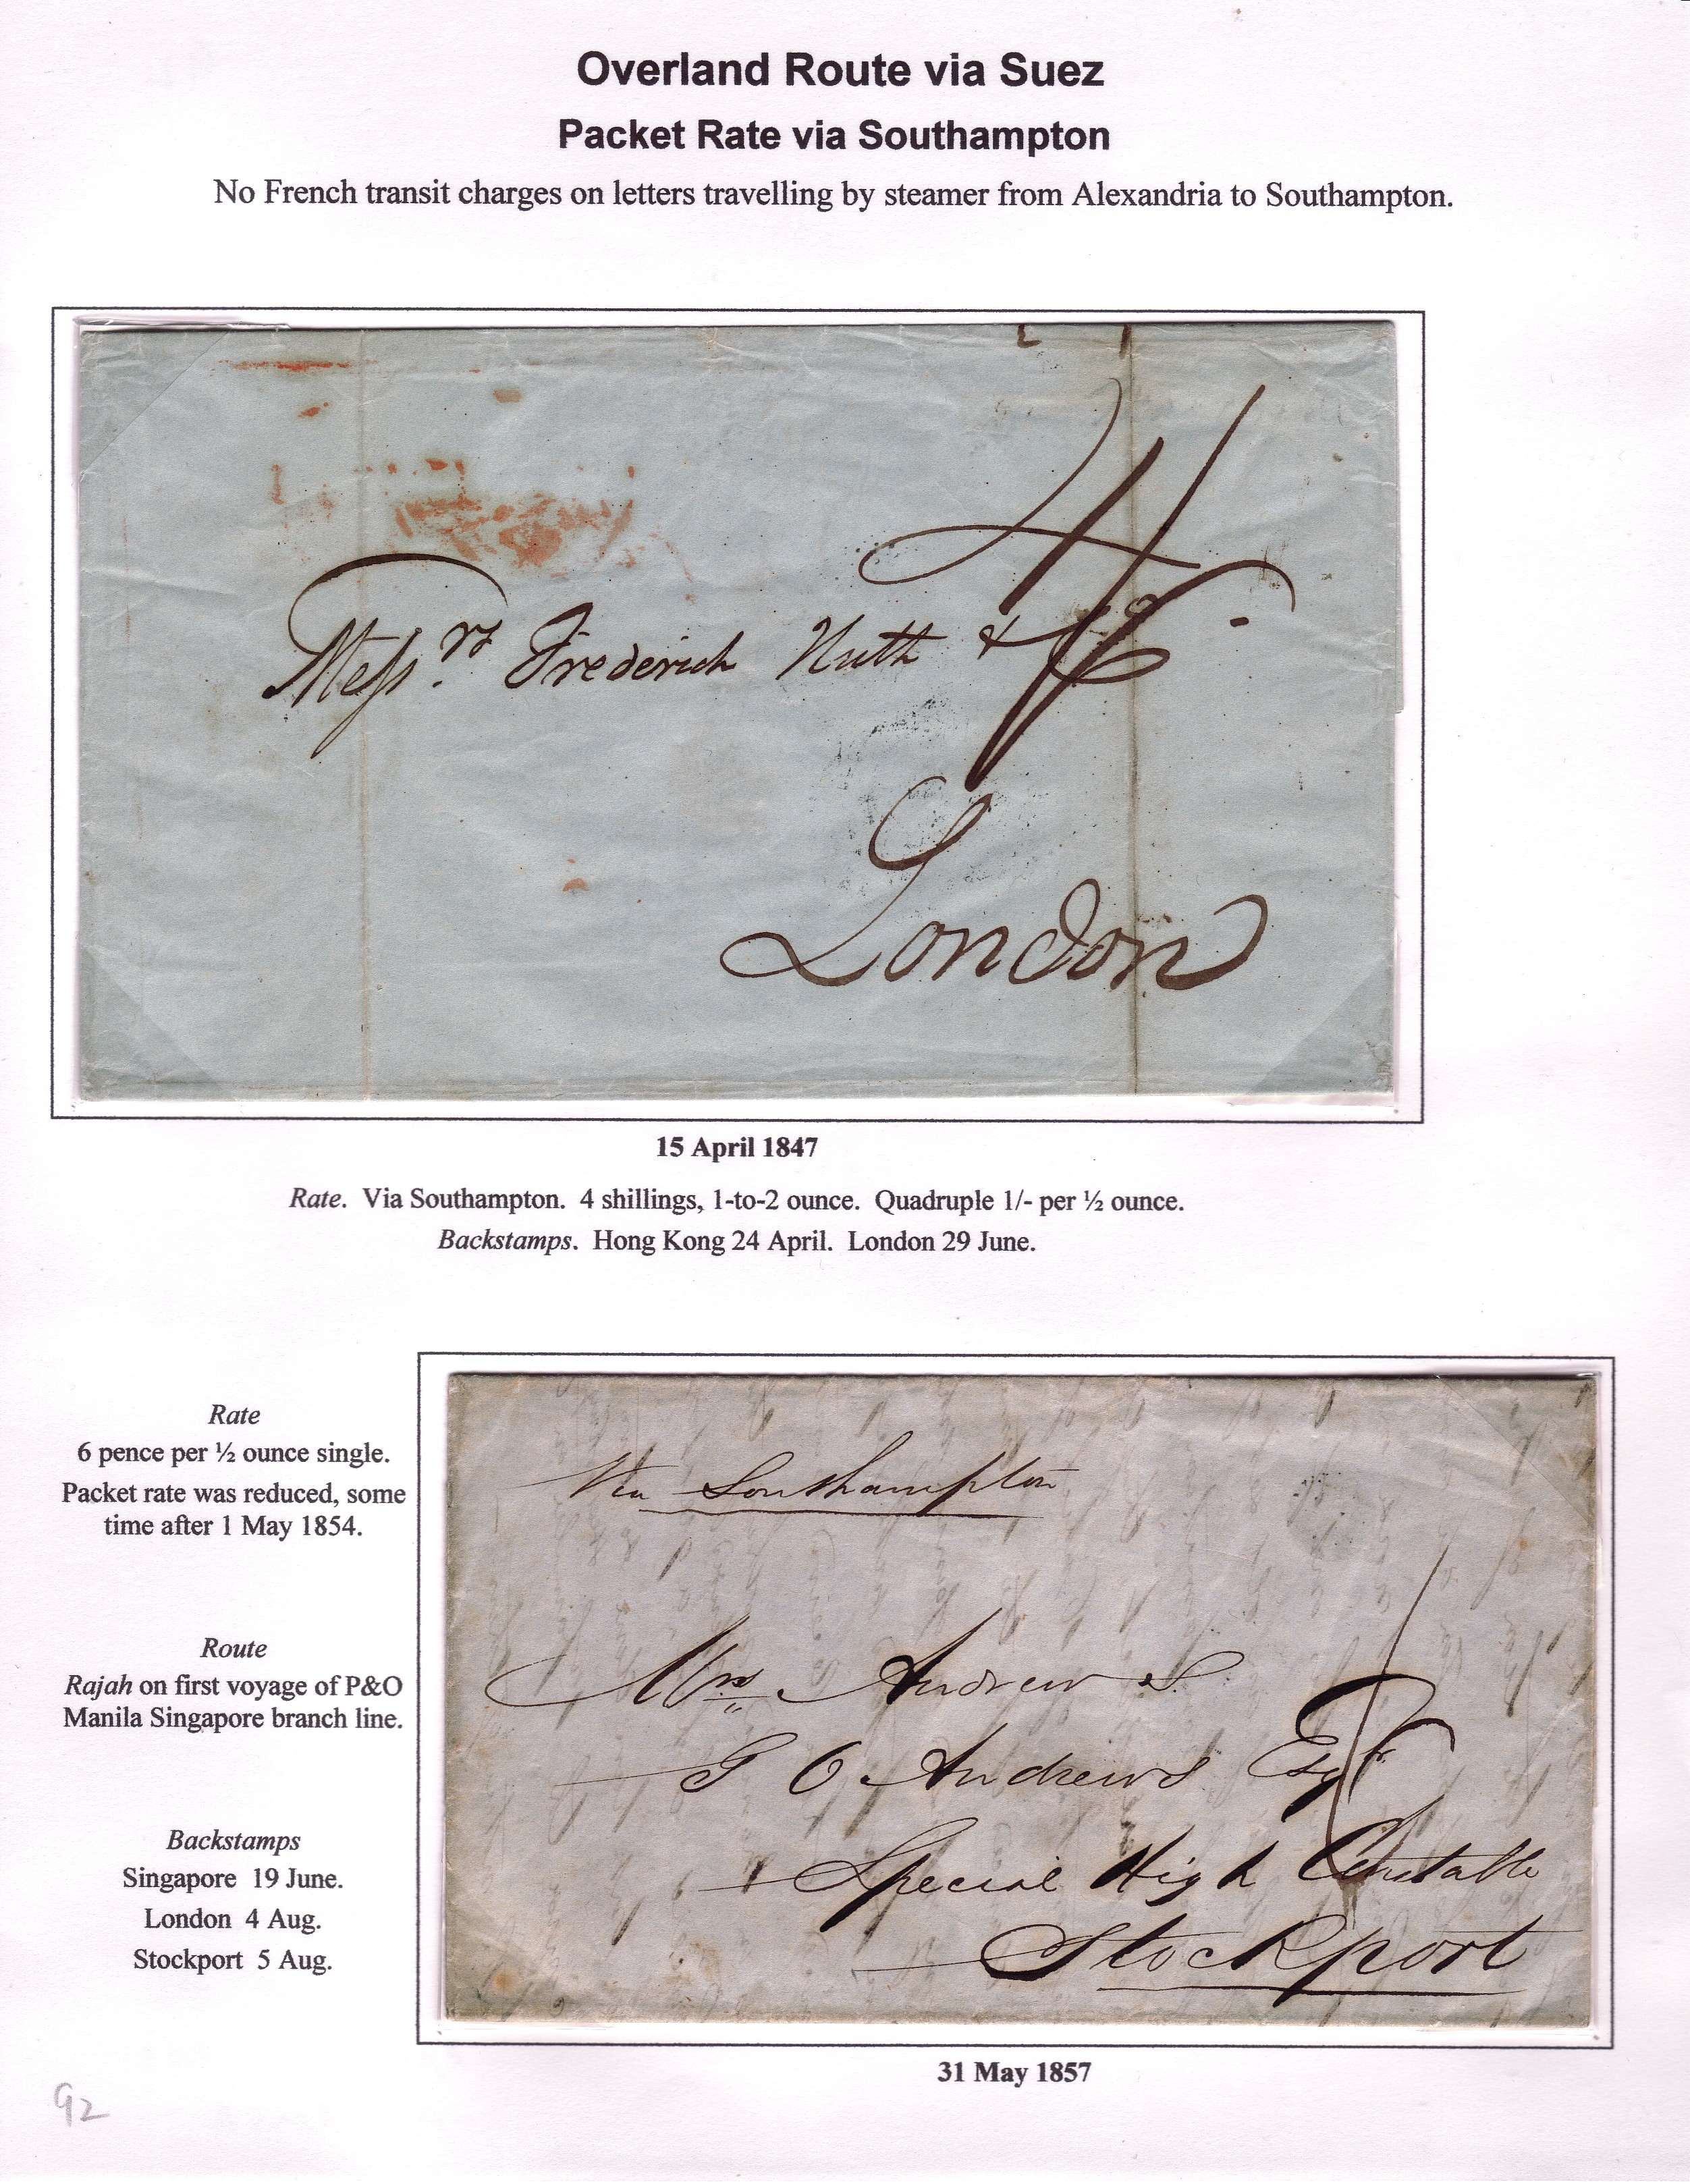 Overland Route via Suez
Packet Rate via Southampton
No French transit charges on letters travelling by steamer from Alexandria to Southampton.
4/-
Messrs. Frederick Huth & Co.
London
15 April 1847
Rate. Via Southampton. 4 shillings, 1-to-2 ounce. Quadruple 1/- per ½ ounce.
Backstamps. Hong Kong 24 April. London 29 June.
Rate
6 pence per ½ ounce single.
Packet rate was reduced, some
time after 1 May 1854.
Route
Rajah on first voyage of P&O
Manila Singapore branch line.
Backstamps
Singapore 19 June.
London 4 Aug.
Stockport 5 Aug.
Via Southampton
Mrs Andrew S
G O Andrews Esqr
Special High Constable
Stockport
31 May 1857
92